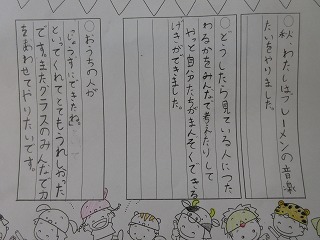 ○秋 わたしはブレーメンの音楽
たいをやりました。
○どうしたら見ている人につた
わるかをみんなで考えたりして
やっと自分たちがまんぞくできる
げきができました。
○おうちの人が
「じょうずにできたね。」
といってくれてとてもうれしかった
です。またクラスのみんなで力
をあわせてやりたいです。